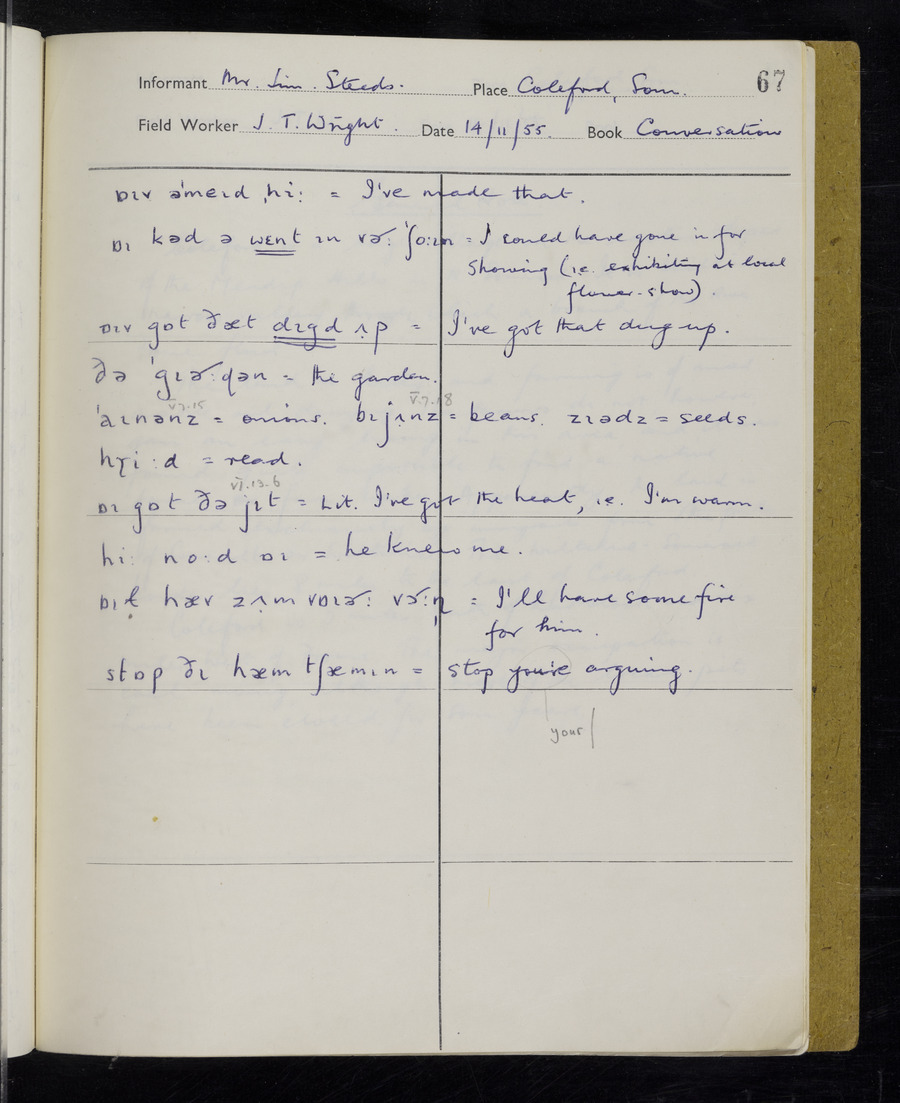 Informant Mr. Jim. Steeds. Place Coleford, Som. 67
Field Worker J. T. Wright. Date 14/11/55. Book Conversation
ɒɪv əˈmeɪd ˌhiː = I've made that.
ɒɪ kəd ə wɛnt ɪn və˞ː ˈʃoːɪn = I could have gone in for
showing (i.e. exhibiting at local
flower-show).
ɒɪv gɒt ðæt dɪgd ʌp = I've got that dug up.
ðə ˈgɪə˞ːdən = the garden.
V.7.15 V.7.18
ˈaɪnənz = onions. bɪjʌnz = beans. zɪədz = seeds.
hɽiːd = read.
VI.13.6
ɒɪ gɒt ðə jɪt = Lit. I've got the heat, i.e. I'm warm.
hiː noːd ɒɪ = he knew me.
ɒɪɫ hæv zʌm vɒɪə˞ː və˞ːn̩ = I'll have some fire
for him.
stɒp ðɪ hæm tʃæmɪn = stop you're arguing.
your/